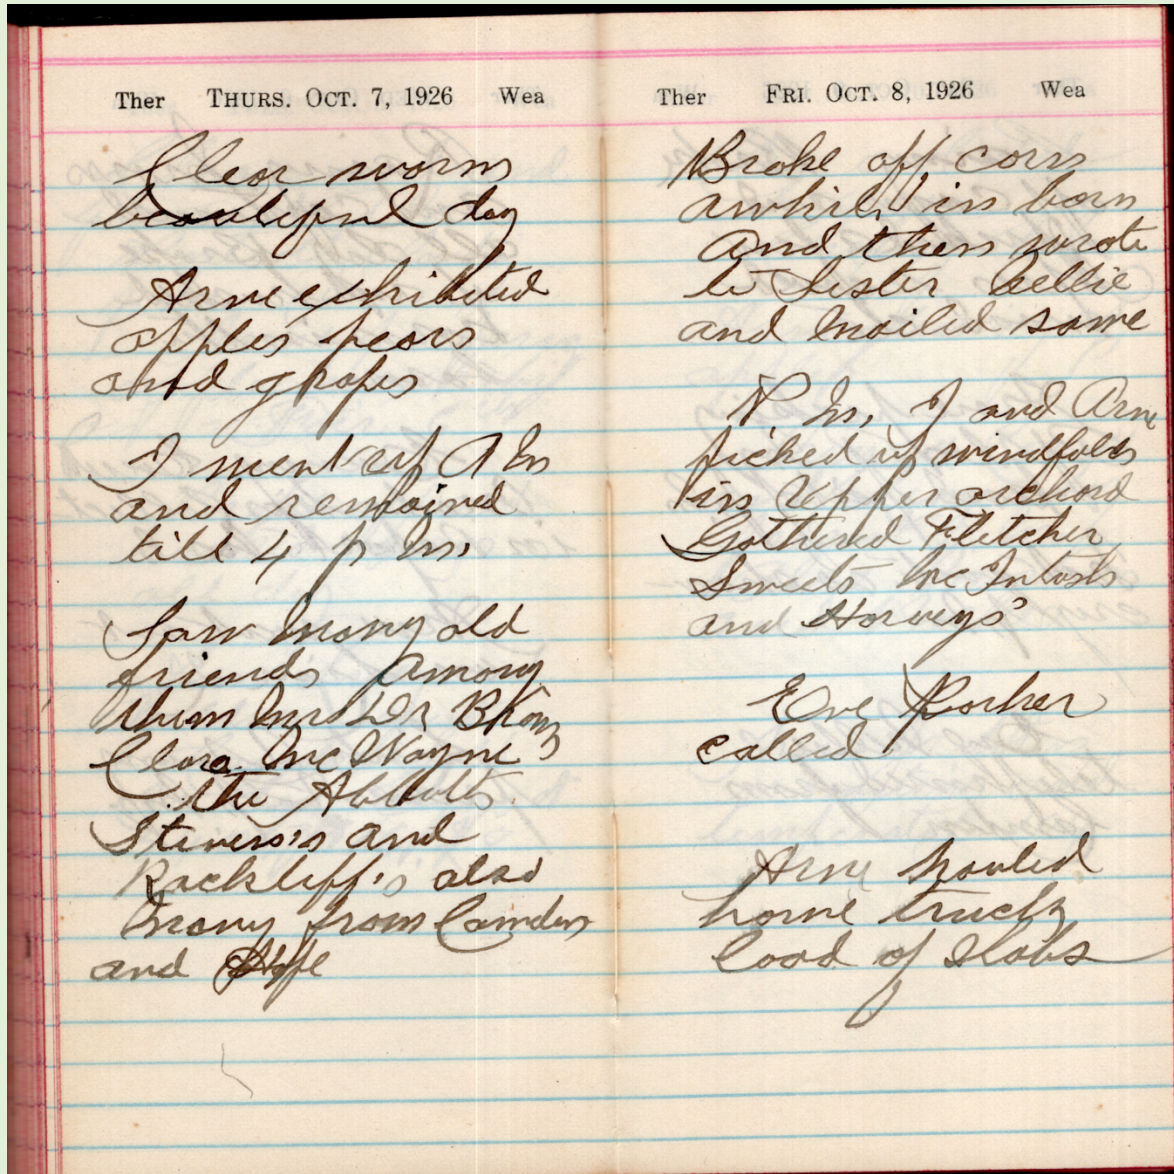 Ther THURS. OCT. 7, 1926 Wea
Clear warm
beautiful day
Arne exhibited
apples pears
and grapes
I went up A M
and remained
till 4 p m.
Saw many old
friends among
them Mrs Dr Brown
Clara McWayne
the Abbotts
Stevens's and
Rackliff's also
many from Camden
and Hope
Ther FRI. OCT. 8, 1926 Wea
Broke off corn
awhile in barn
and then wrote
to Sister Nellie
and mailed same
P. M. I and Arne
picked up windfalls
in Upper orchard
Gathered Fletcher
Sweets McIntosh
and Harveys'
Eve Parker
called
Arne hauled
home truck
load of slabs